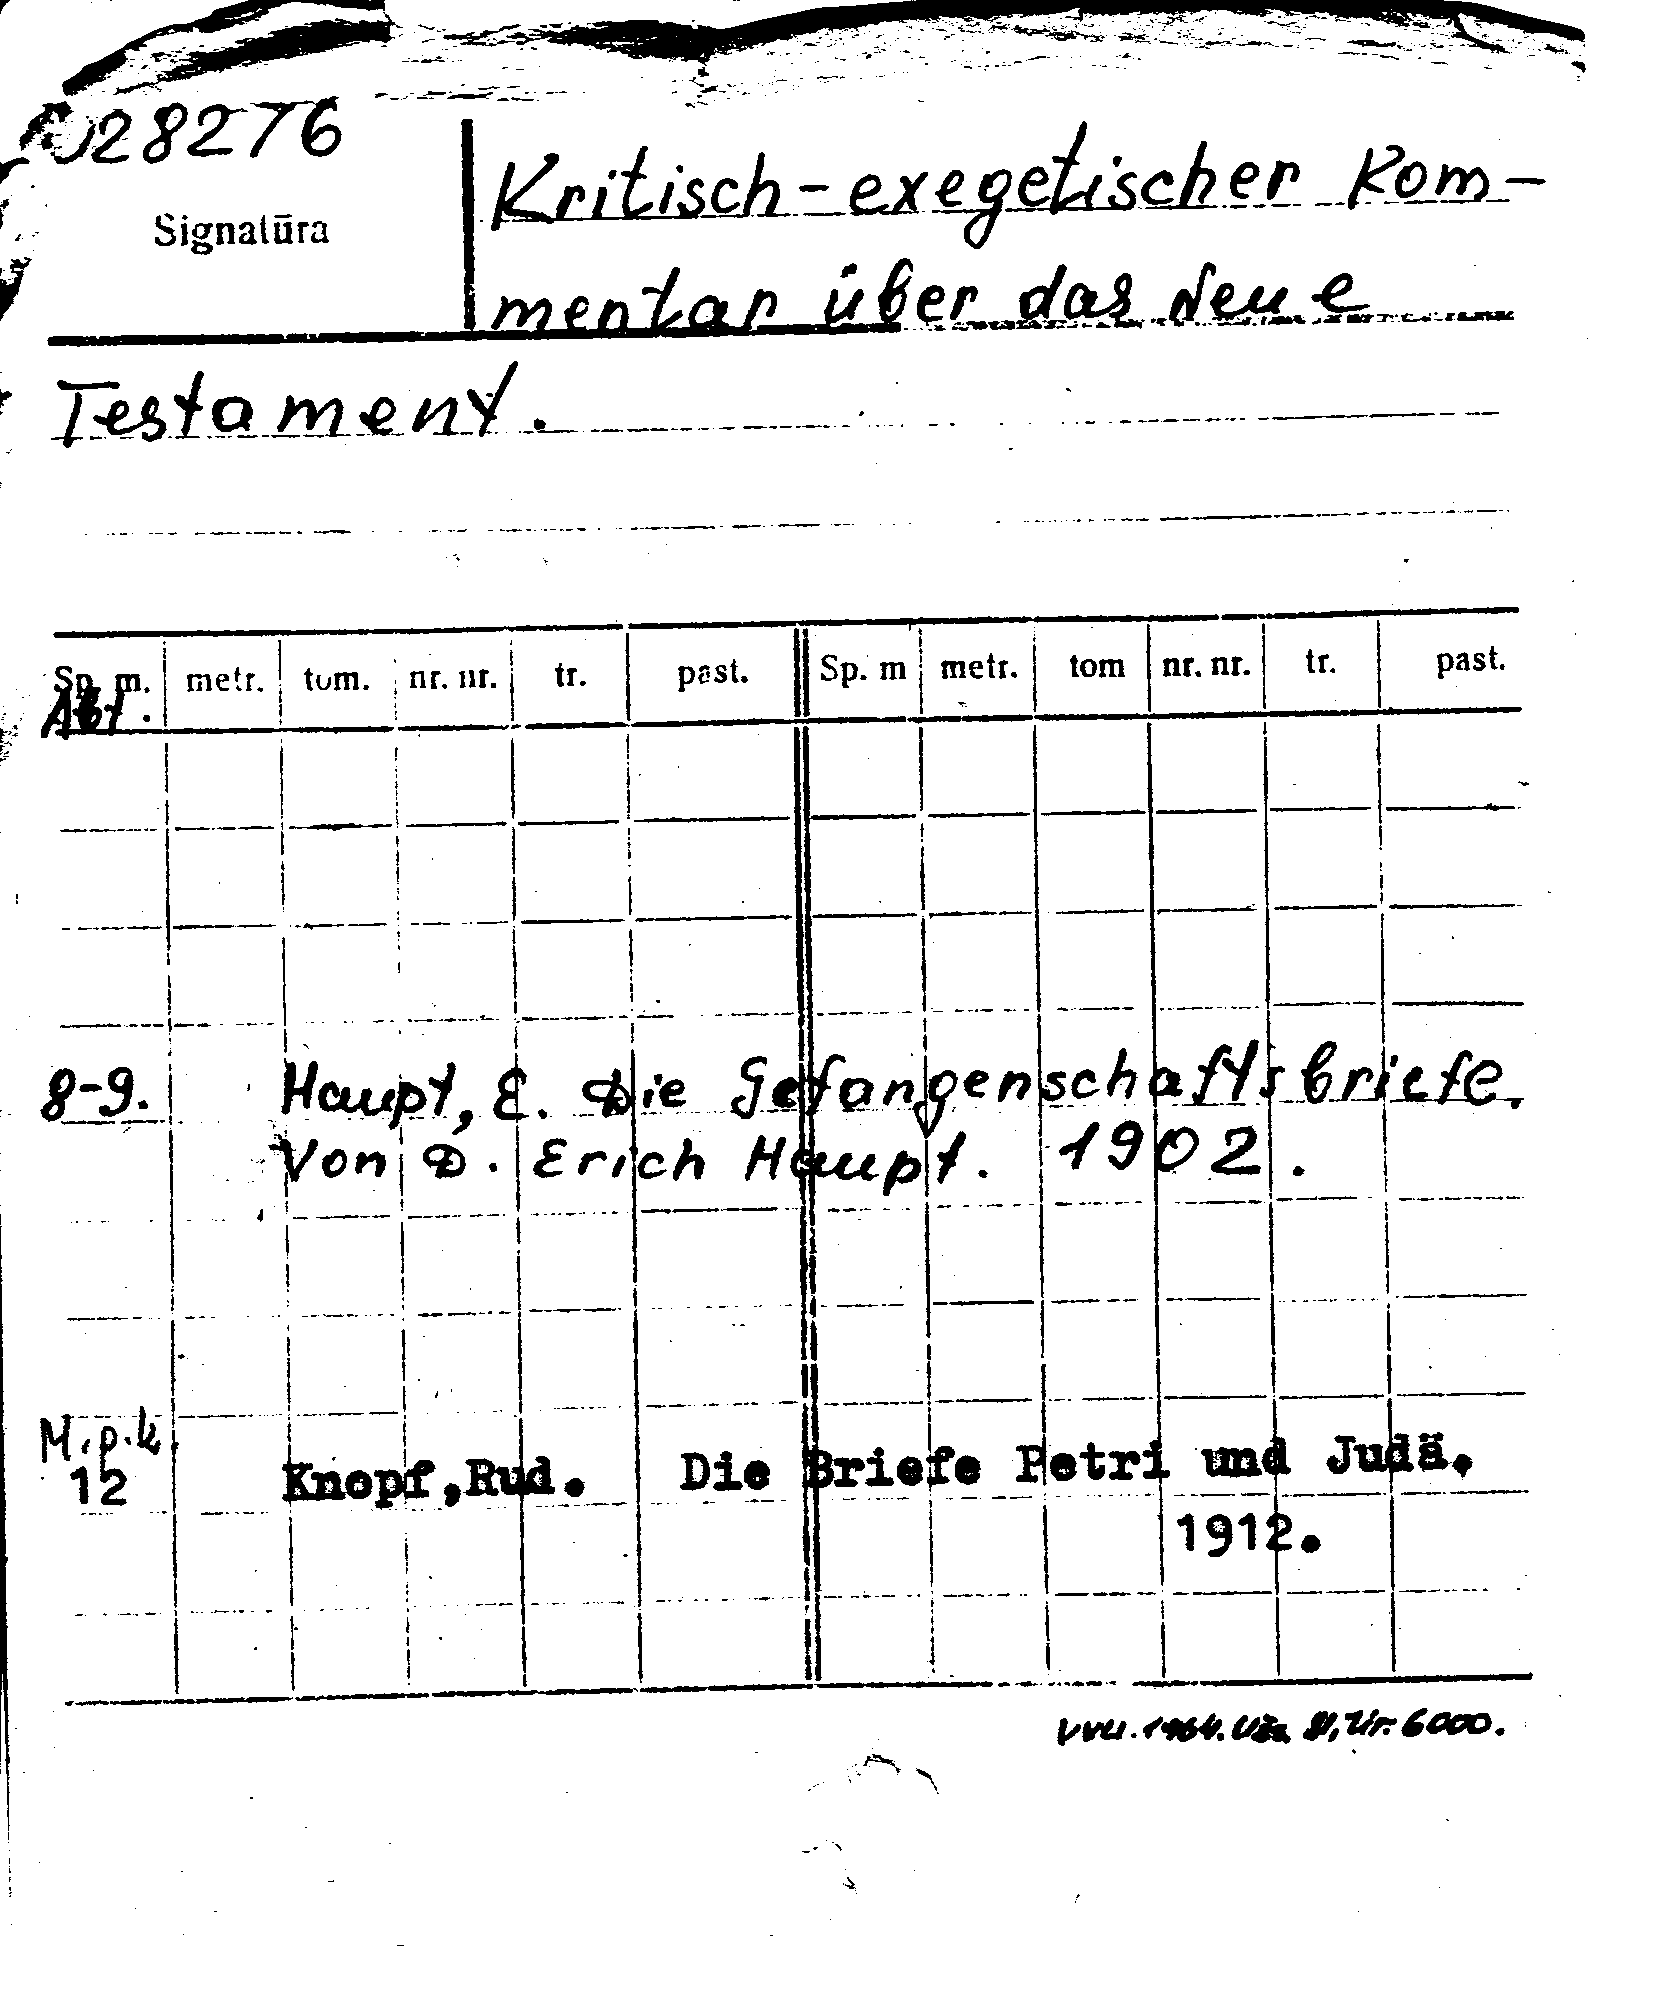 28276
Signatūra
Kritisch-exegetischer Kom-
mentar über das Neue
Testament.
Sp. m. metr. tom. nr. nr. tr. past. Sp. m metr. tom nr. nr. tr. past.
Abt.
8-9. Haupt, E. Die Gefangenschaftsbriefe.
Von D. Erich Haupt. 1902.
M.p.k.
12 Knopf,Rud. Die Briefe Petri und Judä.
1912.
VVU. 1964. Tir. 6000.